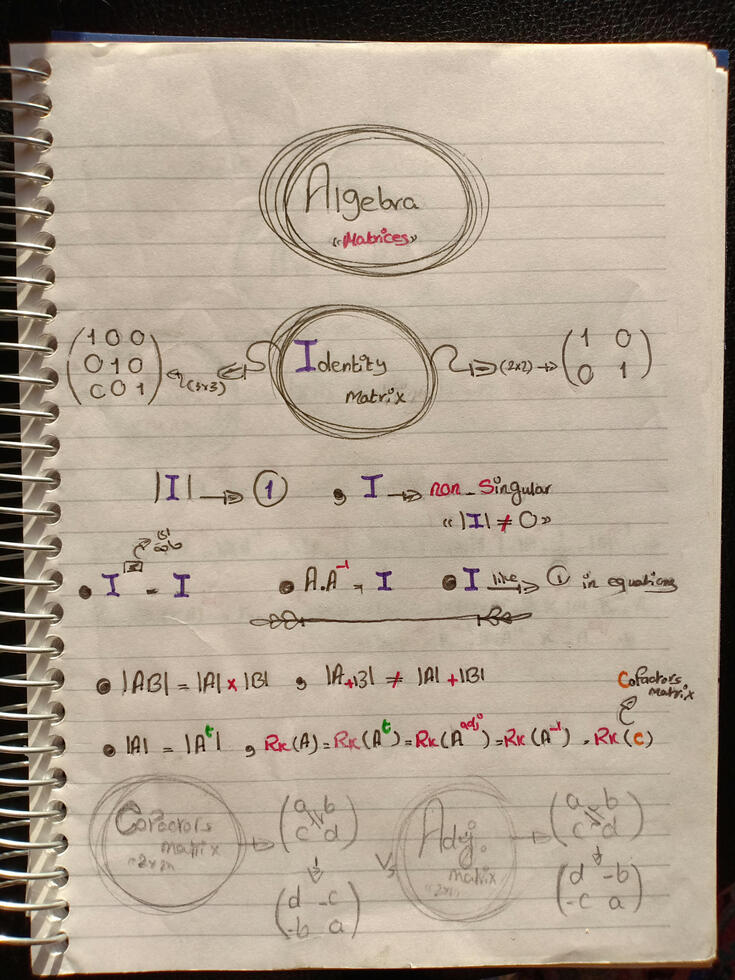 Algebra
«Matrices»
Identity
matrix
(1 0 0
0 1 0
0 0 1)
(3x3)
(2x2) → (1 0
0 1)
|I| → 1 , I → non-Singular
«|I| ≠ 0»
• I = I • A.A⁻¹ = I • I like → 1 in equations
• |AB| = |A| x |B| , |A+B| ≠ |A| + |B|
Cofactors
matrix
• |A| = |Aᵗ| , RK(A) = RK(Aᵗ) = RK(Aᵃᵈʲ) = RK(A⁻¹) = RK(C)
Cofactors
matrix
→ (a b
c d)
(d -c
-b a)
Vs
Adj.
matrix
→ (a b
c d)
(d -b
-c a)